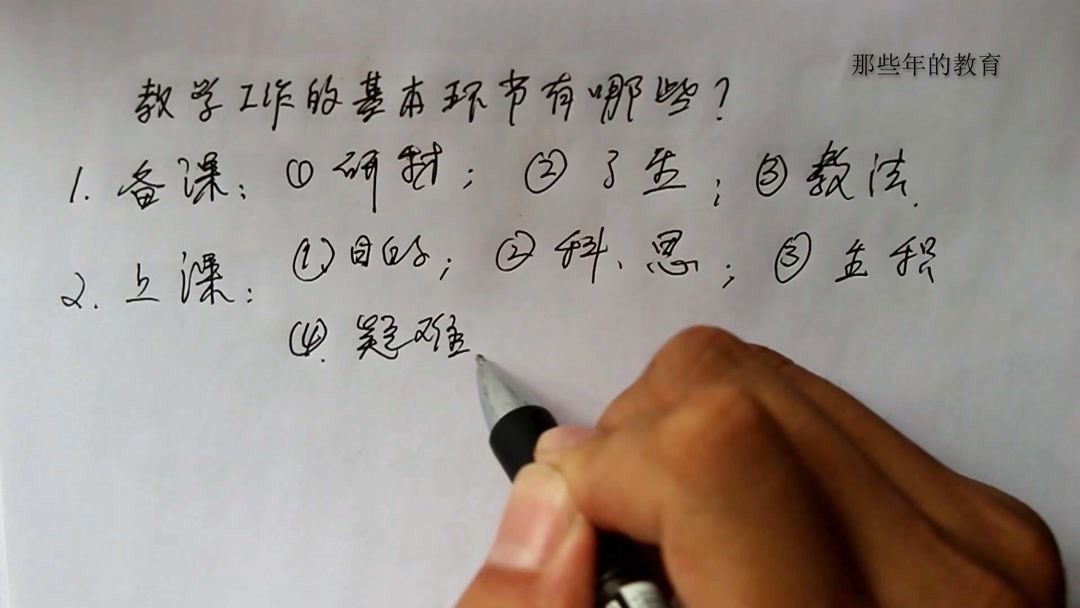 那些年的教育
教学工作的基本环节有哪些?
1. 备课: ① 研材; ② 了生; ③ 教法.
2. 上课: ① 目的; ② 科、思; ③ 主积
④. 疑难